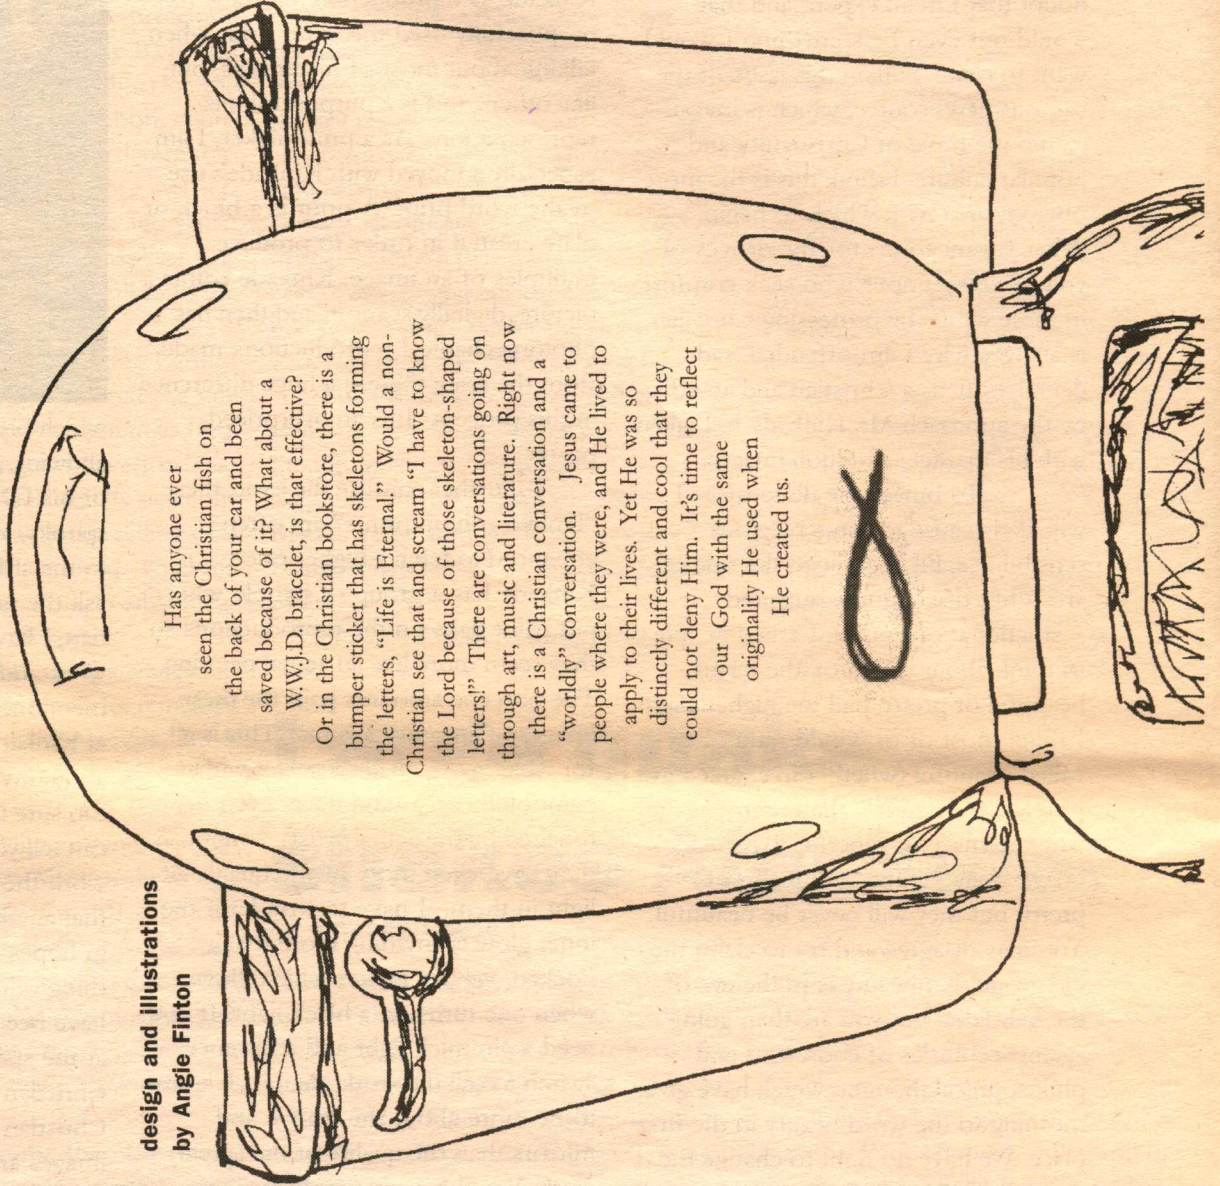 design and illustrations
by Angie Finton
Has anyone ever
seen the Christian fish on
the back of your car and been
saved because of it? What about a
W.W.J.D. bracelet, is that effective?
Or in the Christian bookstore, there is a
bumper sticker that has skeletons forming
the letters, “Life is Eternal.” Would a non-
Christian see that and scream “I have to know
the Lord because of those skeleton-shaped
letters!” There are conversations going on
through art, music and literature. Right now
there is a Christian conversation and a
“worldly” conversation. Jesus came to
people where they were, and He lived to
apply to their lives. Yet He was so
distinctly different and cool that they
could not deny Him. It’s time to reflect
our God with the same
originality He used when
He created us.